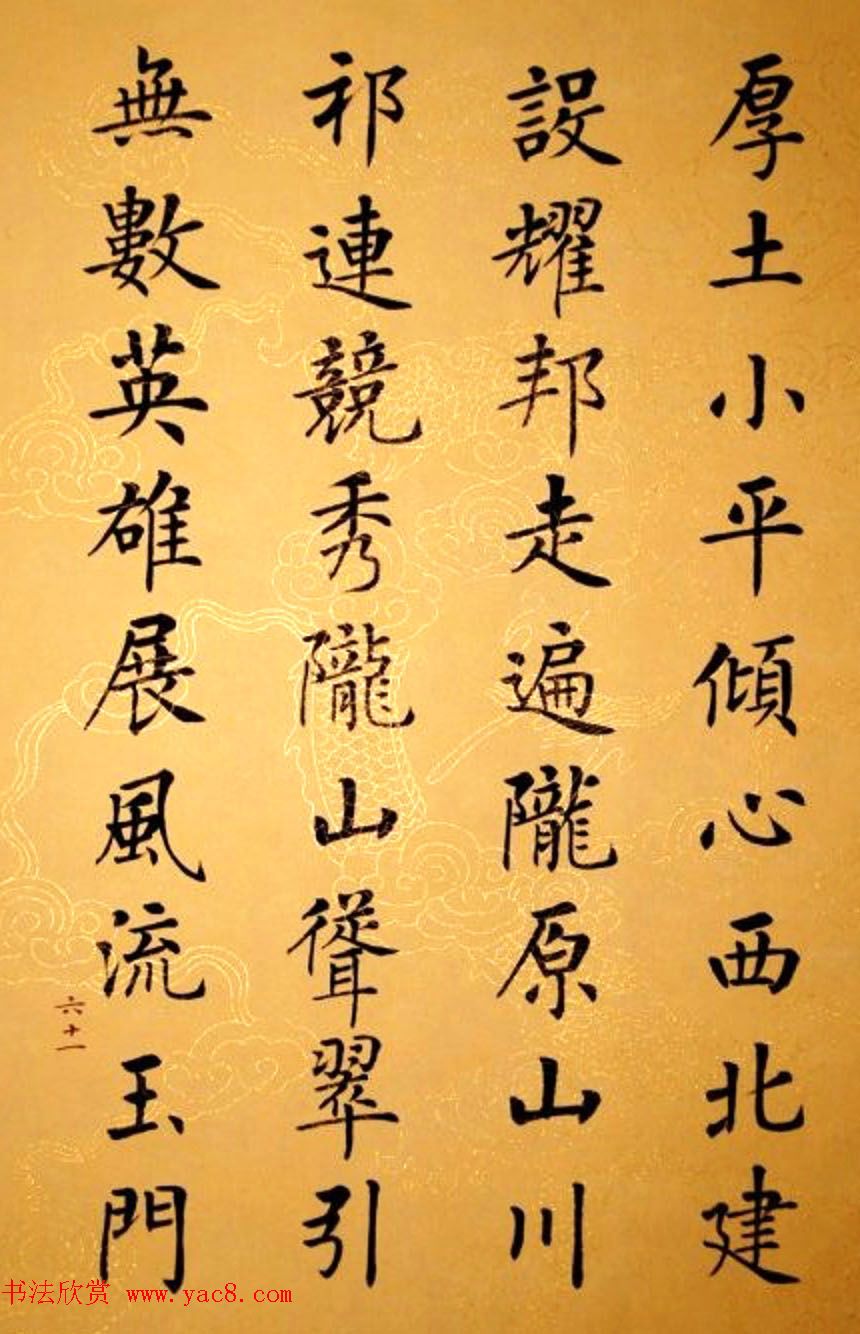 厚土小平傾心西北建
設耀邦走遍隴原山川
祁連競秀隴山聳翠引
無數英雄展風流玉門
六十一
书法欣赏 www.yac8.com